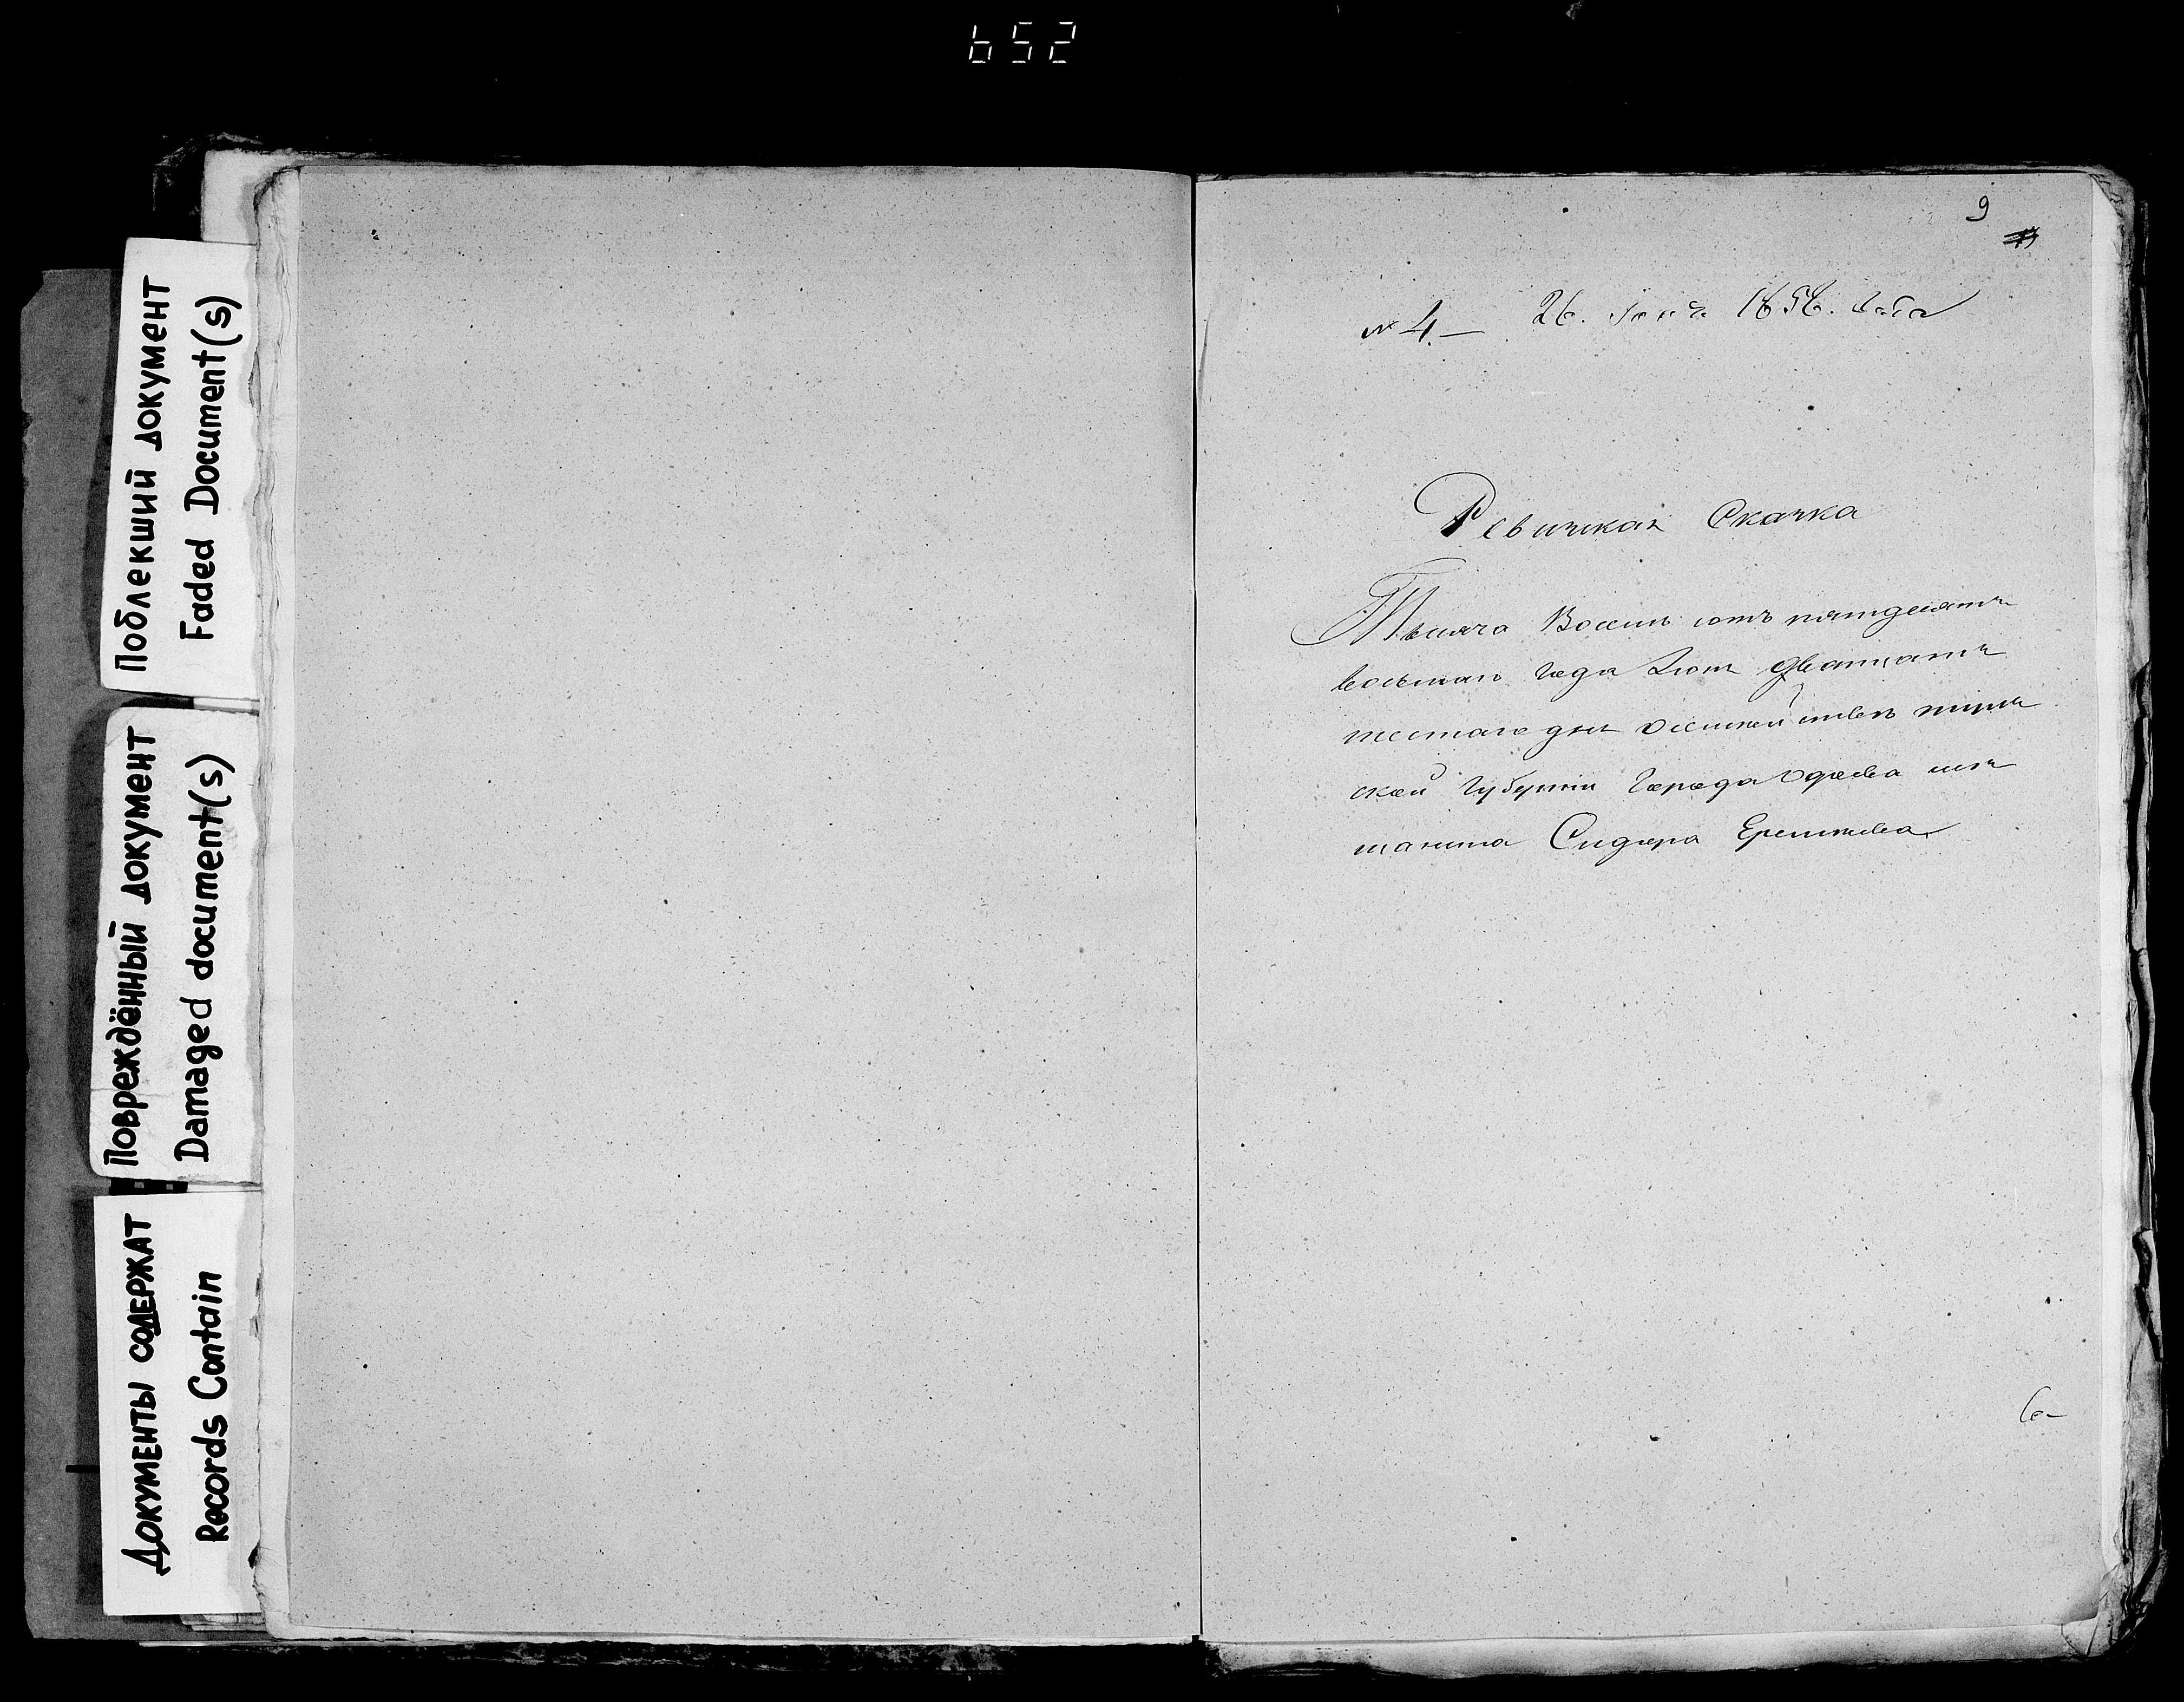 652
Поблекший документ
Faded Document(s)
Повреждённый документ
Damaged document(s)
Документы содержат
Records Contain
9
№ 4.— 26. Іюня 1858. года
Ревизская Сказка
Тысяча Восемь сотъ пятдесятъ
восьмаго года Іюня дватцать
шестаго дня
ской Губерніи Города мѣ
щанина Сидора
6-